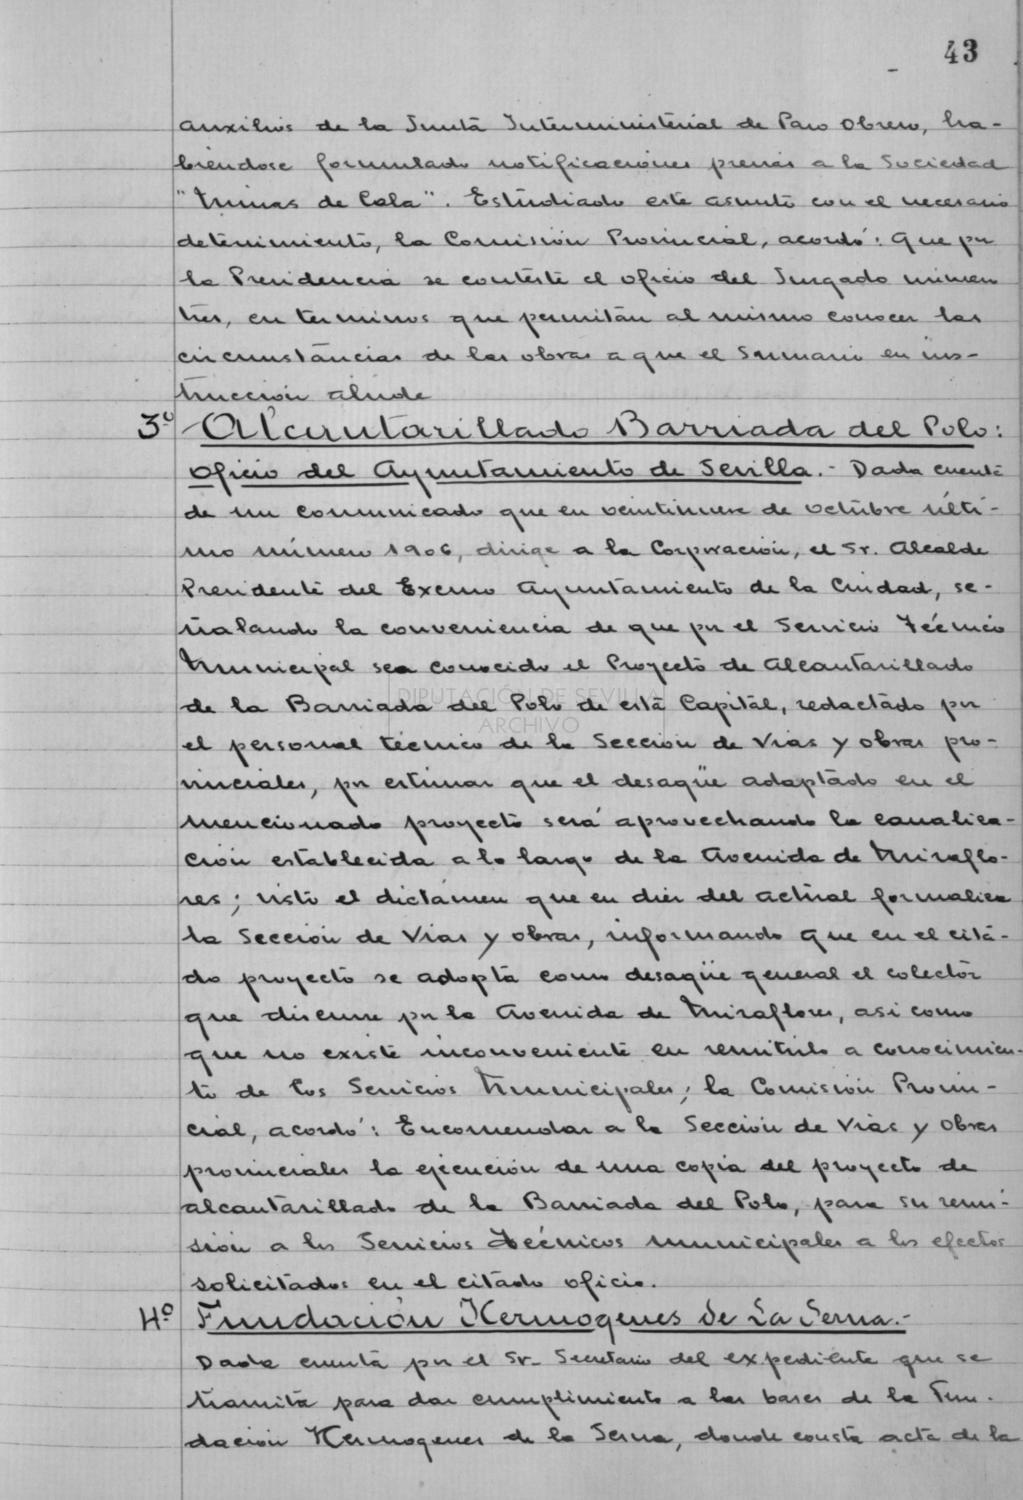 43
auxilios de la Junta Interministerial de Paro Obrero, ha-
biéndose formulado notificaciones previas a la Sociedad
"Minas de Cala". Estudiado este asunto con el necesario
detenimiento, la Comisión Provincial, acordó: Que por
la Presidencia se conteste el oficio del Juzgado número
tres, en terminos que permitan al mismo conocer las
circunstancias de las obras a que el sumario en ins-
trucción alude
3º Alcantarillado Barriada del Polo:
Oficio del Ayuntamiento de Sevilla.- Dada cuenta
de un comunicado que en veintinueve de octubre últi-
mo número 1906, dirige a la Corporación, el Sr. Alcalde
Presidente del Excmo Ayuntamiento de la Ciudad, se-
ñalando la conveniencia de que por el Servicio Técnico
Municipal sea conocido el Proyecto de Alcantarillado
de la Barriada del Polo de esta Capital, redactado por
el personal técnico de la Sección de Vias y obras pro-
vinciales, por estimar que el desagüe adaptado en el
mencionado proyecto será aprovechando la canaliza-
ción establecida a lo largo de la Avenida de Miraflo-
res; visto el dictámen que en diez del actual formaliza
la Sección de Vias y obras, informando que en el cita-
do proyecto se adopta como desagüe general el colector
que discurre por la Avenida de Miraflores, asi como
que no existe inconveniente en remitirlo a conocimien-
to de los Servicios Municipales; la Comisión Provin-
cial, acordó: Encomendar a la Sección de Vias y Obras
provinciales la ejecución de una copia del proyecto de
alcantarillado de la Barriada del Polo, para su remi-
sión a los Servicios Técnicos municipales a los efectos
solicitados en el citado oficio.
4º Fundación Hermogenes de La Serna.-
Dada cuenta por el Sr. Secretario del expediente que se
tramita para dar cumplimiento a las bases de la Fun-
dación Hermogenes de la Serna, donde consta acta de la
DIPUTACIÓN DE SEVILLA
ARCHIVO